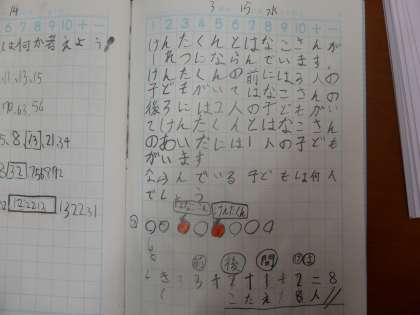 14
6 7 8 9 10 + -
は何か考えよう
.11.13.15
70.63.56
5.8.13.21.34
32
12212
132231
3 15 水
1 2 3 4 5 6 7 8 9 10 + -
けんたくんとはなこさんが
1れつにならんでいます。
けんたくんの前には3人の
子どもがいてはなこさんの
後ろには2人の子どもがい
てけんたくんとはなこさん
のあいだには1人の子ども
がいます
ならんでいる子どもは何人
でしょう
けんたくん
前 後 間
しき:3+2+1+2=8
こたえ:8人